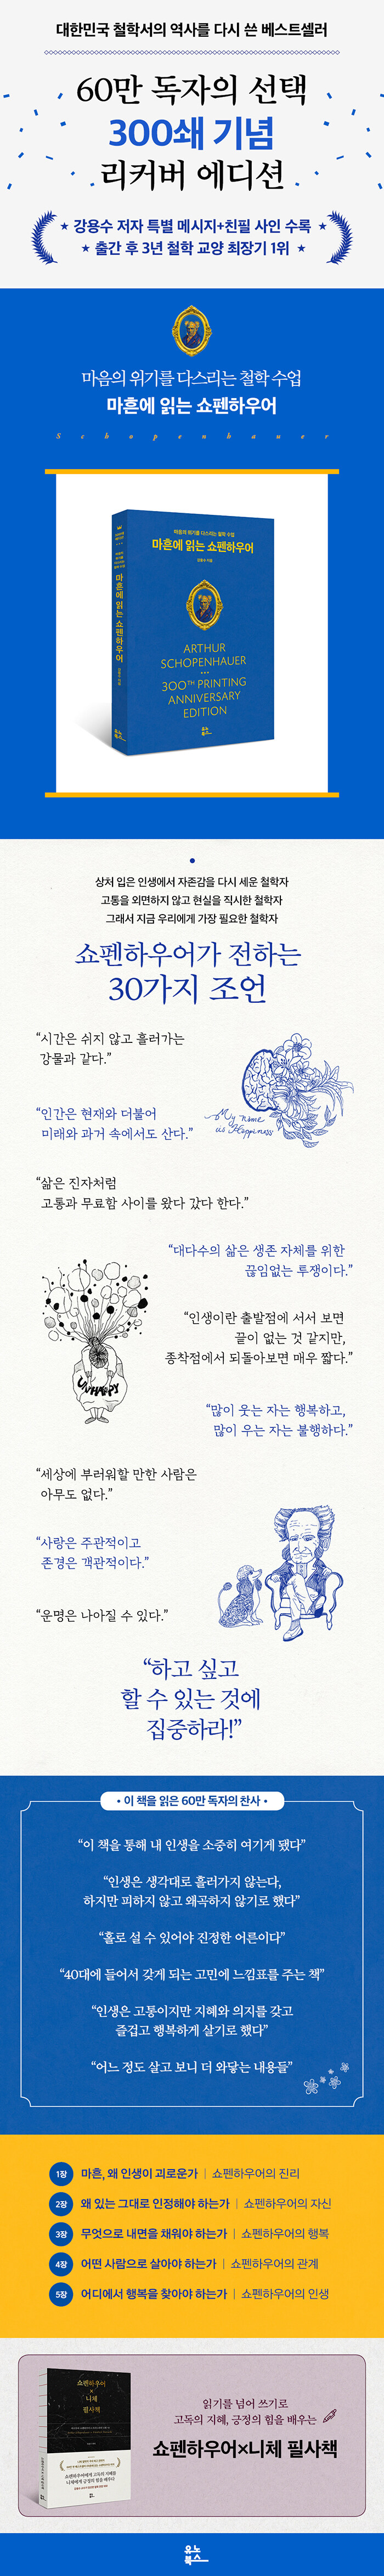 대한민국 철학서의 역사를 다시 쓴 베스트셀러
60만 독자의 선택
300쇄 기념
리커버 에디션
★ 강용수 저자 특별 메시지+친필 사인 수록 ★
★ 출간 후 3년 철학 교양 최장기 1위 ★
마음의 위기를 다스리는 철학 수업
마흔에 읽는 쇼펜하우어
Schopenhauer
마음의 위기를 다스리는 철학 수업
마흔에 읽는 쇼펜하우어
강용수 지음
마흔에 읽는 쇼펜하우어
ARTHUR
SCHOPENHAUER
300TH PRINTING
ANNIVERSARY
EDITION
유노
북스
상처 입은 인생에서 자존감을 다시 세운 철학자
고통을 외면하지 않고 현실을 직시한 철학자
그래서 지금 우리에게 가장 필요한 철학자
쇼펜하우어가 전하는
30가지 조언
“시간은 쉬지 않고 흘러가는
강물과 같다.”
My name
is Happiness
“인간은 현재와 더불어
미래와 과거 속에서도 산다.”
“삶은 진자처럼
고통과 무료함 사이를 왔다 갔다 한다.”
“대다수의 삶은 생존 자체를 위한
끊임없는 투쟁이다.”
“인생이란 출발점에 서서 보면
끝이 없는 것 같지만,
종착점에서 되돌아보면 매우 짧다.”
UNHAPPY
“많이 웃는 자는 행복하고,
많이 우는 자는 불행하다.”
“세상에 부러워할 만한 사람은
아무도 없다.”
“사랑은 주관적이고
존경은 객관적이다.”
“운명은 나아질 수 있다.”
“하고 싶고
할 수 있는 것에
집중하라!”
• 이 책을 읽은 60만 독자의 찬사 •
“이 책을 통해 내 인생을 소중히 여기게 됐다”
“인생은 생각대로 흘러가지 않는다,
하지만 피하지 않고 왜곡하지 않기로 했다”
“홀로 설 수 있어야 진정한 어른이다”
“40대에 들어서 갖게 되는 고민에 느낌표를 주는 책”
“인생은 고통이지만 지혜와 의지를 갖고
즐겁고 행복하게 살기로 했다”
“어느 정도 살고 보니 더 와닿는 내용들”
1장 마흔, 왜 인생이 괴로운가 | 쇼펜하우어의 진리
2장 왜 있는 그대로 인정해야 하는가 | 쇼펜하우어의 자신
3장 무엇으로 내면을 채워야 하는가 | 쇼펜하우어의 행복
4장 어떤 사람으로 살아야 하는가 | 쇼펜하우어의 관계
5장 어디에서 행복을 찾아야 하는가 | 쇼펜하우어의 인생
쇼펜하우어
×
니체
필사책
쇼펜하우어에게 고독의 지혜를
니체에게 긍정의 힘을 배우다
읽기를 넘어 쓰기로
고독의 지혜, 긍정의 힘을 배우는
쇼펜하우어×니체 필사책
유노
북스